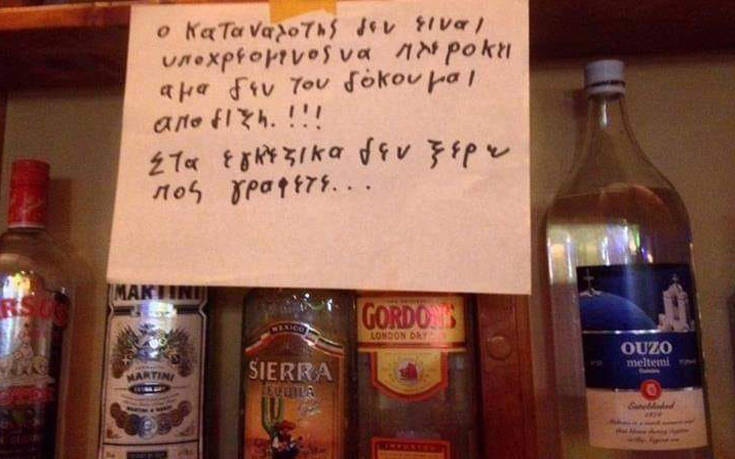 Ο καταναλοτης δεν ειναι
υποχρεομενος να πλεροκη
αμα δεν του δόκουμαι
αποδιξη.!!!
Στα εγκλεζικα δεν ξερω
πος γραφετε...
MARTINI
MARTINI
EXTRA DRY
MEXICO
SIERRA
TEQUILA
GORDON'S
LONDON DRY
IMPORTED
OUZO
meltemi
Established